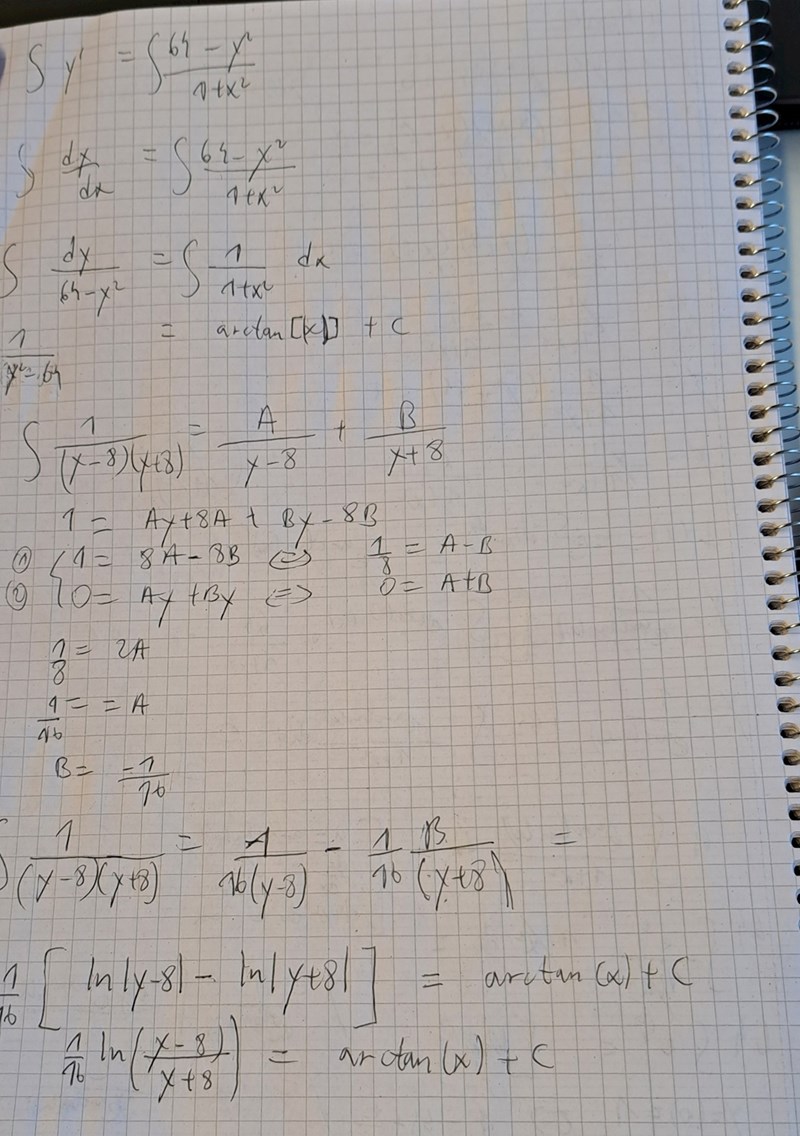 ∫ y' = ∫ (64 - y²)/(1+x²)
∫ dy/dx = ∫ (64 - y²)/(1+x²)
∫ dy/(64-y²) = ∫ 1/(1+x²) dx
1/(y²-64) = arctan[(x)] + C
∫ 1/((y-8)(y+8)) = A/(y-8) + B/(y+8)
1 = Ay+8A + By-8B
① { 1 = 8A-8B <=> 1/8 = A-B
② { 0 = Ay+By <=> 0 = A+B
1/8 = 2A
1/16 = = A
B = -1/16
∫ 1/((y-8)(y+8)) = 1/(16(y-8)) - 1/16 B/(y+8) =
1/16 [ ln|y-8| - ln|y+8| ] = arctan(x) + C
1/16 ln((y-8)/(y+8)) = arctan(x) + C